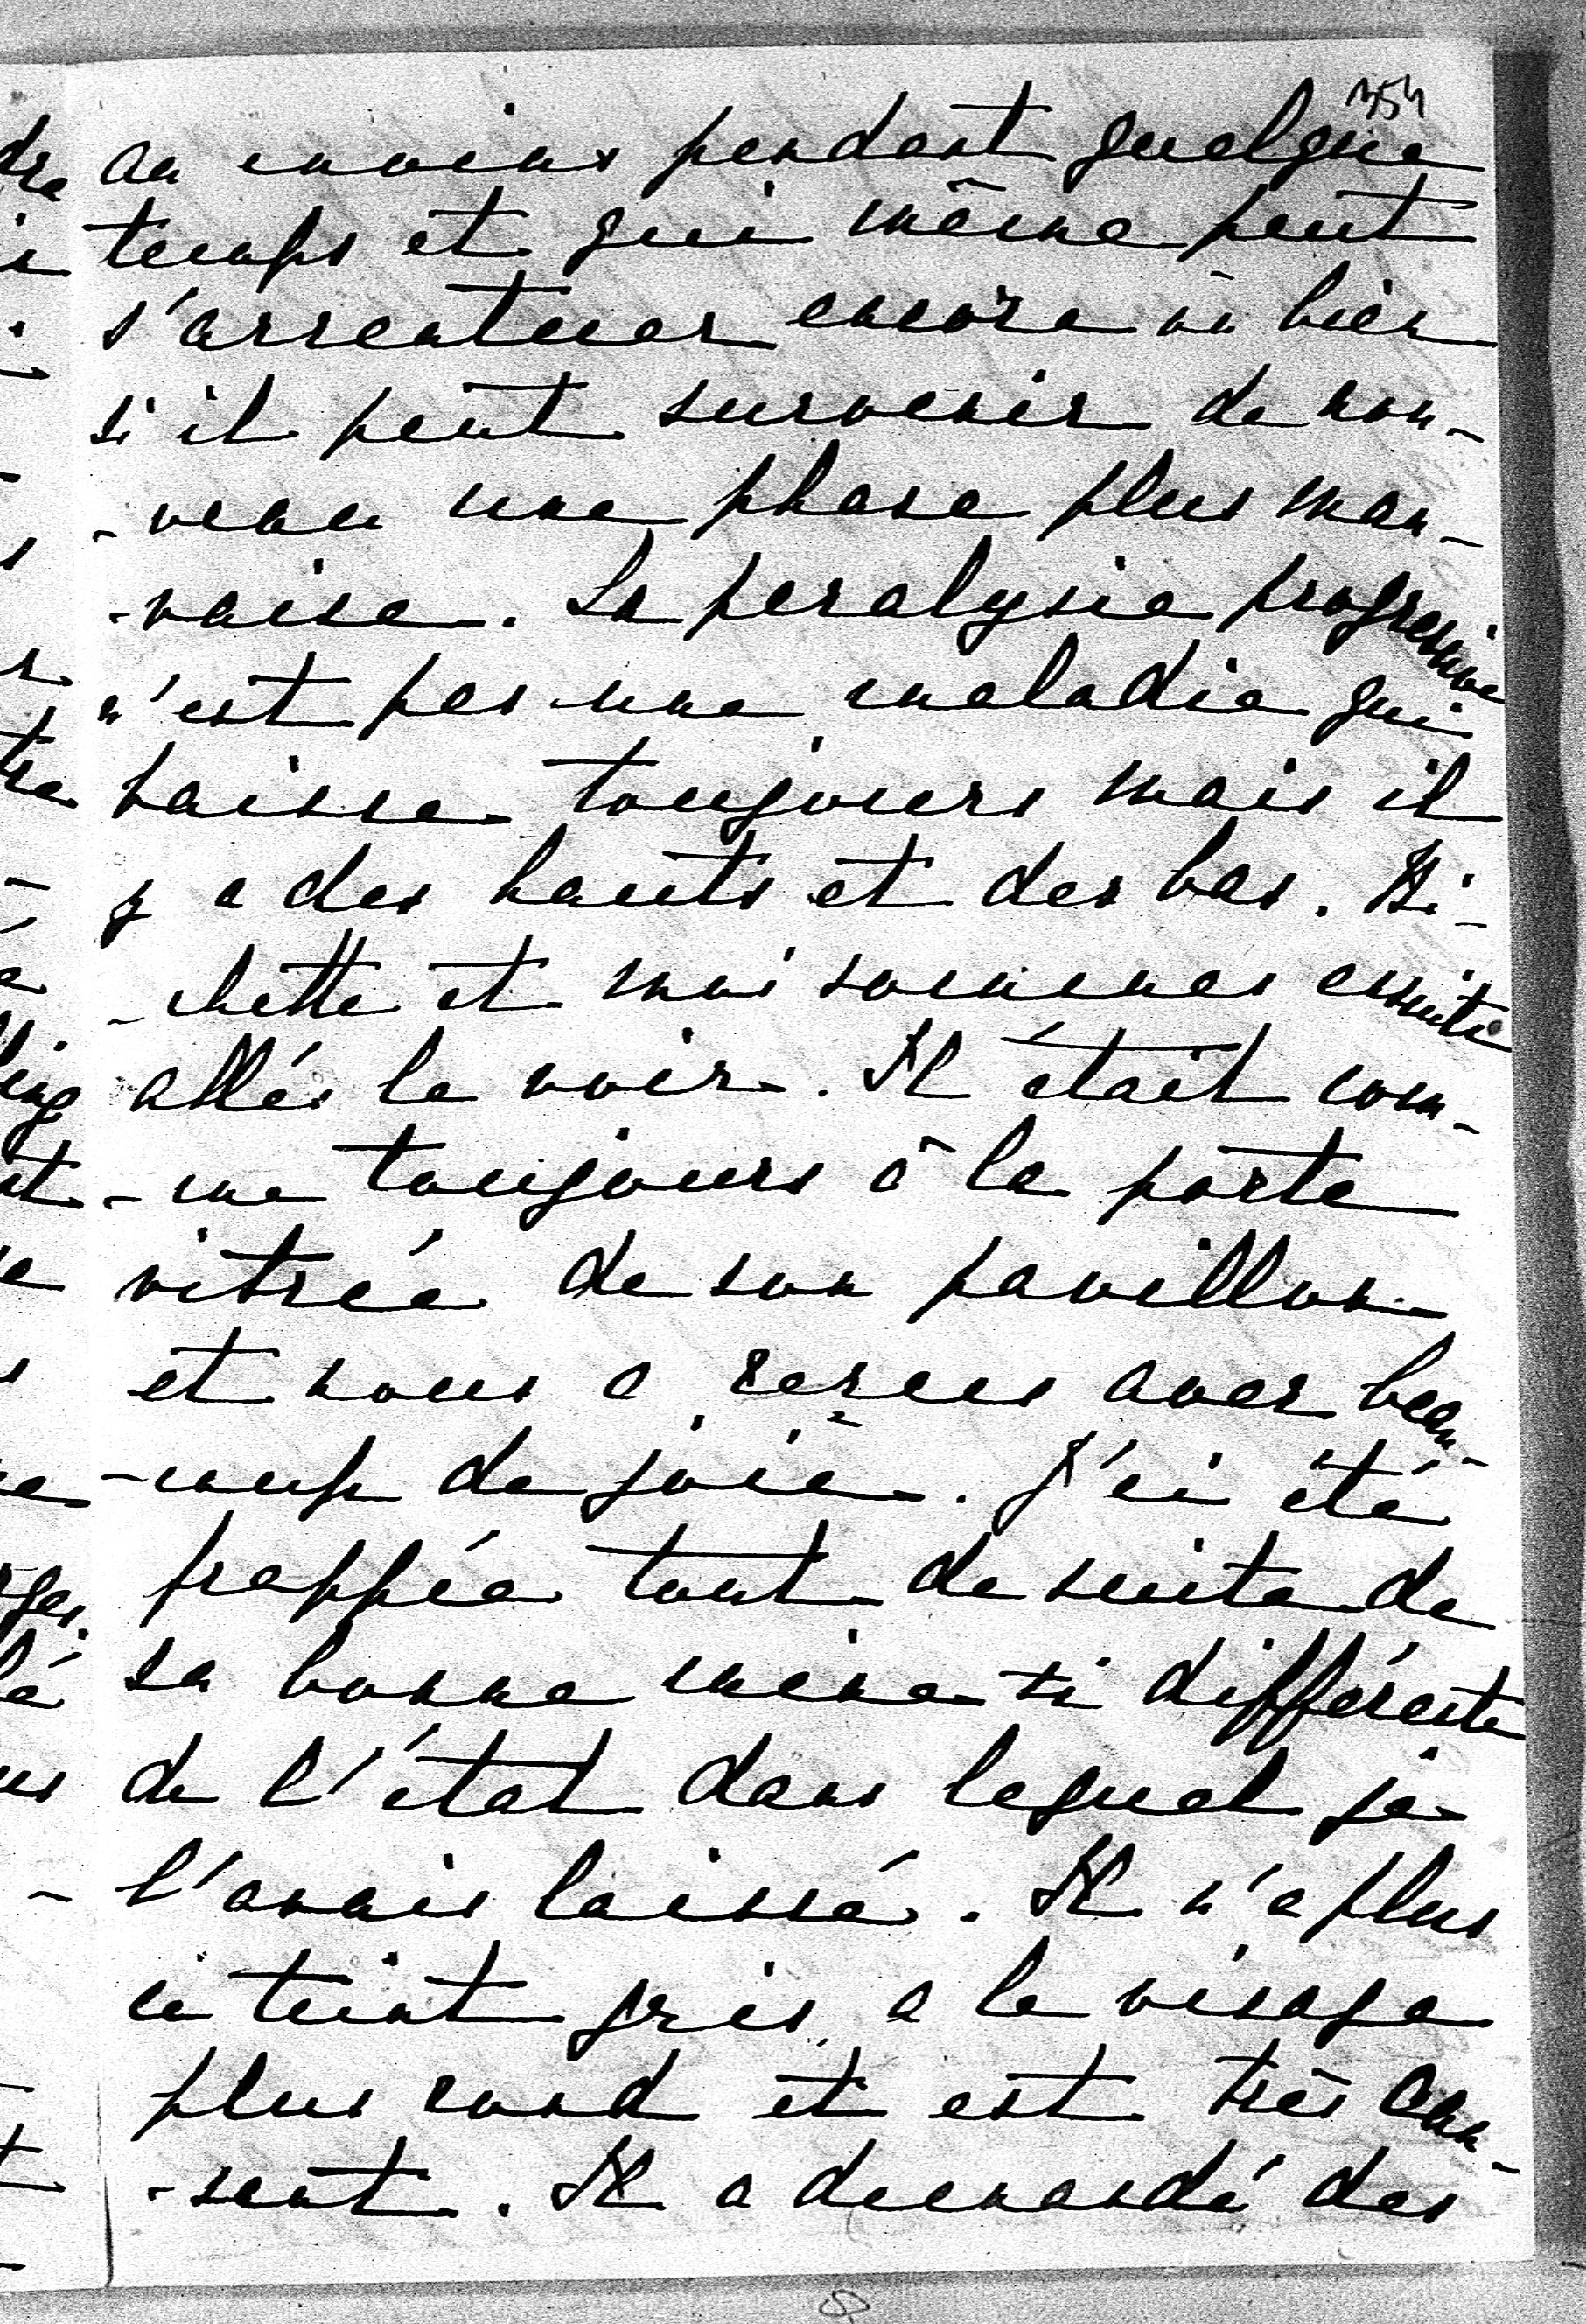 354
au moins pendant quelque
temps et qui même peut
s'accentuer encore ou bien
si il peut survenir de nou-
-veau une phase plus mau-
-vaise. La paralysie progressive
n'est pas une maladie qui
baisse toujours mais il
y a des hauts et des bas. Bi-
-chette et moi sommes ensuite
allés le voir. Il était com-
-me toujours à la porte
vitrée de son pavillon
et nous a reçues avec beau-
-coup de joie. J'ai été
frappée tout de suite de
sa bonne mine si différente
de l'état dans lequel je
l'avais laissé. Il n'a plus
ce teint gris, a le visage
plus rond et est très cau-
-sant. Il a demandé des